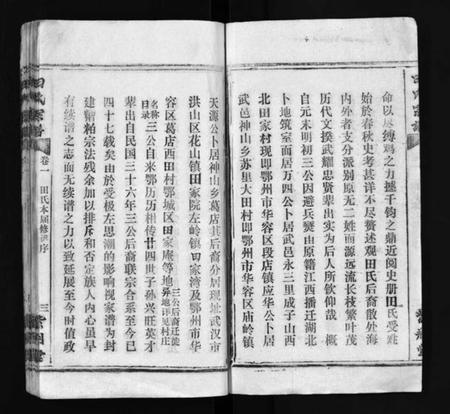 命以尽缚鸡之力撼千钧之鼎近阅史册田氏受姓
始於春秋史考甚详不尽赘述观田氏后裔散处海
内外者支分派别原无二姓而源远流长枝繁叶茂
历代文揆武耀忠贤辈出实为后人所钦仰哉 概
自元末明初三公因避兵燹由原籍江西播迁湖北
卜地筑室而居万四公卜居武邑永三里成子山西
北田家村现即鄂州市华容区段店镇应华公卜居
武邑神山乡苏里大田村即鄂州市华容区庙岭镇
天源公卜居神山乡葛店其后裔分居现址武汉市
洪山区花山镇田家院左岭镇田家湾及鄂州市华
容区葛店西田村鄂城区田家庵等地 三公后裔迁徙地异地详见村庄名称目录
三公自来鄂历历相传廿四世子孙兴旺英才
辈出自民国三十六年三公后裔联宗合系至今已
四十七载矣由於受极左思潮的影响视家谱为封
建糟粕宗法残余加以排斥和否定族人内心虽早
有续谱之志而无续谱之力以致延展至今时值政
卷一 田氏本届修谱序
三
紫荆堂